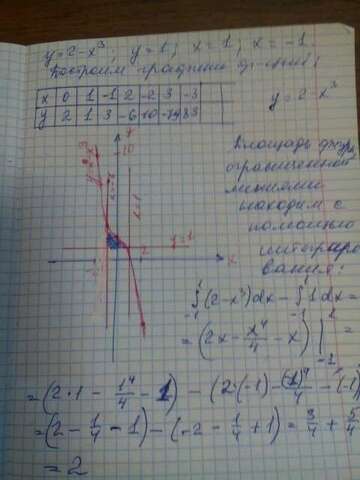 y=2-x³; y=1; x=1; x=-1
Построим графики ф-ций:
x 0 1 -1 2 -2 3 -3
y 2 1 3 -6 10
y=2-x³
y
10
x=1
y=1
2
x
Площадь фигуры
ограниченной
линиями
находим с
помощью
интегриро-
вания:
∫₋₁¹(2-x³)dx - ∫₋₁¹1dx =
= (2x - x⁴/4 - x) |₋₁¹ =
= (2·1 - 1⁴/4 - 1) - (2·(-1) - (-1)⁴/4 - (-1)
= (2 - 1/4 - 1) - (-2 - 1/4 + 1) = 3/4 + 5/4
= 2